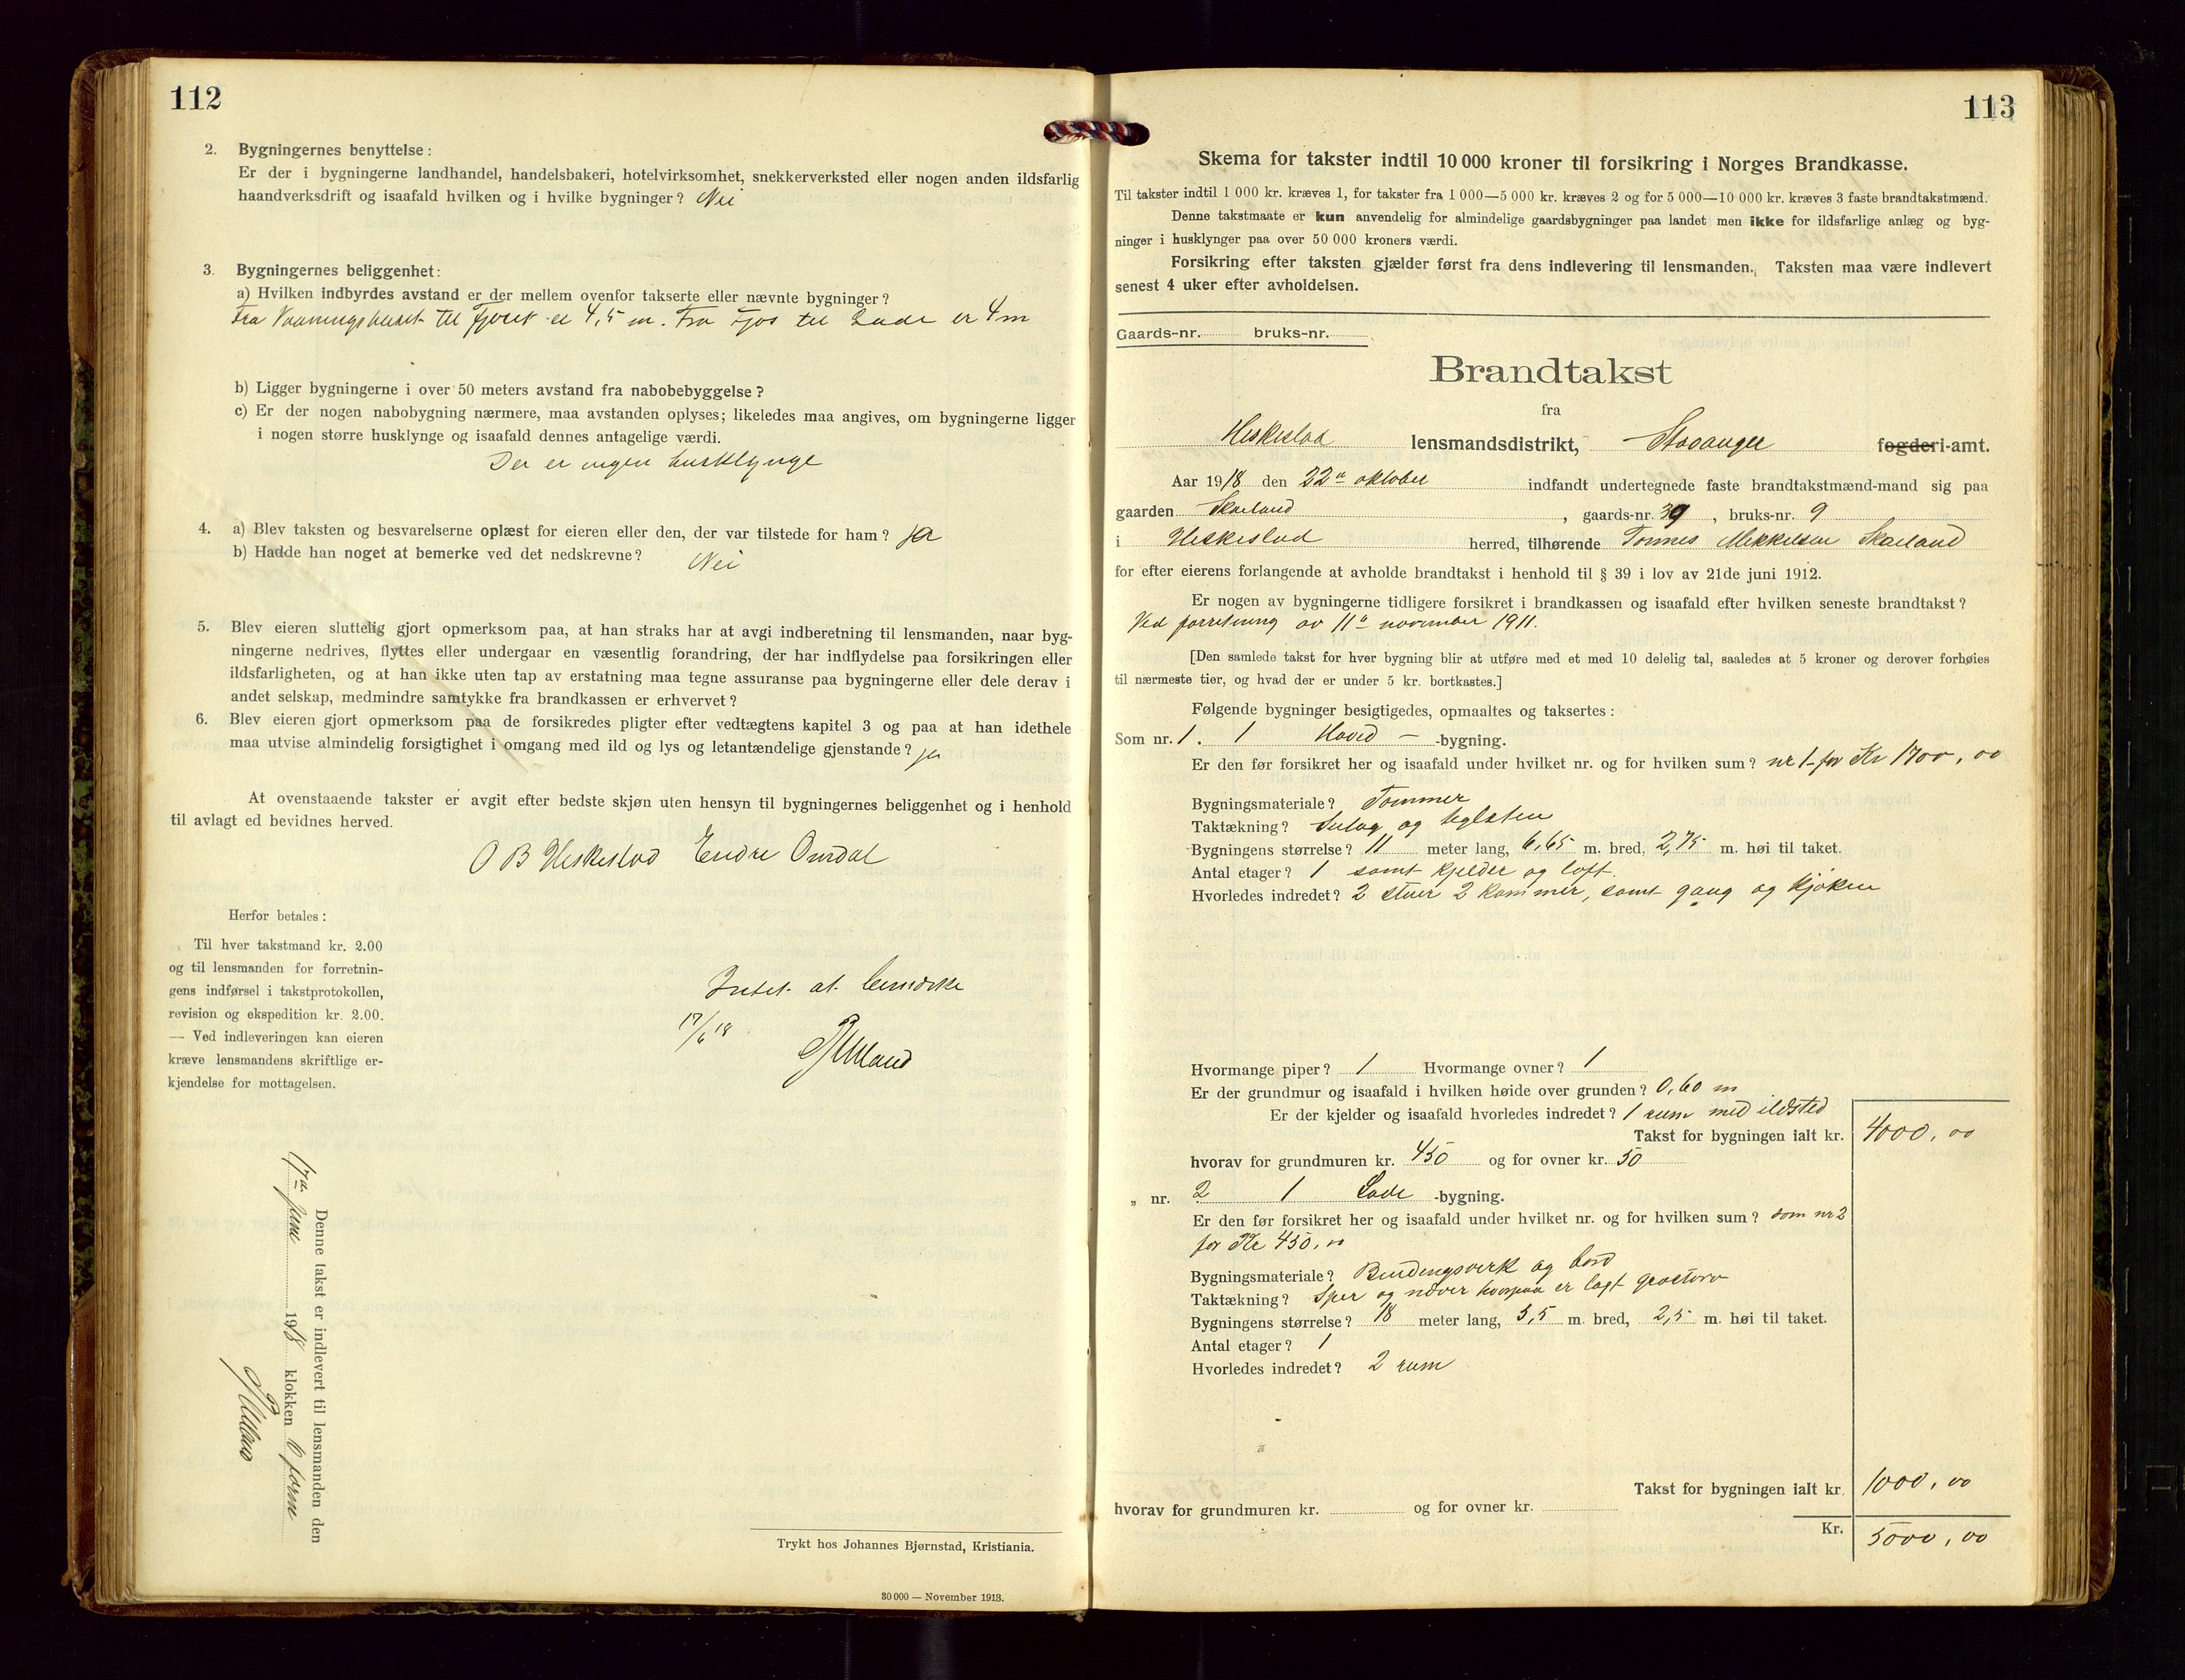 112
2. Bygningernes benyttelse:
Er der i bygningerne landhandel, handelsbakeri, hotelvirksomhet, snekkerverksted eller nogen anden ildsfarlig
haandverksdrift og isaafald hvilken og i hvilke bygninger? Nei
3. Bygningernes beliggenhet:
a) Hvilken indbyrdes avstand er der mellem ovenfor takserte eller nævnte bygninger?
Fra Vaaningshuset til Fjøset er 4,5 m. Fra Fjøs til Lade er 4 m
b) Ligger bygningerne i over 50 meters avstand fra nabobebyggelse?
c) Er der nogen nabobygning nærmere, maa avstanden oplyses; likeledes maa angives, om bygningerne ligger
i nogen større husklynge og isaafald dennes antagelige værdi.
Der er ingen husklynge
4. a) Blev taksten og besvarelserne oplæst for eieren eller den, der var tilstede for ham? Ja
b) Hadde han noget at bemerke ved det nedskrevne? Nei
5. Blev eieren sluttelig gjort opmerksom paa, at han straks har at avgi indberetning til lensmanden, naar byg-
ningerne nedrives, flyttes eller undergaar en væsentlig forandring, der har indflydelse paa forsikringen eller
ildsfarligheten, og at han ikke uten tap av erstatning maa tegne assuranse paa bygningerne eller dele derav i
andet selskap, medmindre samtykke fra brandkassen er erhvervet?
6. Blev eieren gjort opmerksom paa de forsikredes pligter efter vedtægtens kapitel 3 og paa at han idethele
maa utvise almindelig forsigtighet i omgang med ild og lys og letantændelige gjenstande? Ja
At ovenstaaende takster er avgit efter bedste skjøn uten hensyn til bygningernes beliggenhet og i henhold
til avlagt ed bevidnes herved.
O B Heskestad Endre Omdal
Herfor betales:
Til hver takstmand kr. 2.00
og til lensmanden for forretnin-
gens indførsel i takstprotokollen,
revision og ekspedition kr. 2.00.
— Ved indleveringen kan eieren
kræve lensmandens skriftlige er-
kjendelse for mottagelsen.
Intet at bemerke
17/6 18
Denne takst er indlevert til lensmanden den
17de juni 1918 klokken form
Trykt hos Johannes Bjørnstad, Kristiania.
30 000 — November 1913.
113
Skema for takster indtil 10 000 kroner til forsikring i Norges Brandkasse.
Til takster indtil 1 000 kr. kræves 1, for takster fra 1 000—5 000 kr. kræves 2 og for 5 000—10 000 kr. kræves 3 faste brandtakstmænd.
Denne takstmaate er kun anvendelig for almindelige gaardsbygninger paa landet men ikke for ildsfarlige anlæg og byg-
ninger i husklynger paa over 50 000 kroners værdi.
Forsikring efter taksten gjælder først fra dens indlevering til lensmanden. Taksten maa være indlevert
senest 4 uker efter avholdelsen.
Gaards-nr. bruks-nr.
Brandtakst
fra
Heskestad lensmandsdistrikt, Stavanger fogderi-amt.
Aar 1918 den 22de oktober indfandt undertegnede faste brandtakstmænd-mand sig paa
gaarden Skarland, gaards-nr. 39, bruks-nr. 9
i Heskestad herred, tilhørende Tønnes Mikkelsen Skarland
for efter eierens forlangende at avholde brandtakst i henhold til § 39 i lov av 21de juni 1912.
Er nogen av bygningerne tidligere forsikret i brandkassen og isaafald efter hvilken seneste brandtakst?
Ved forretning av 11te november 1911.
[Den samlede takst for hver bygning blir at utføre med et med 10 delelig tal, saaledes at 5 kroner og derover forhøies
til nærmeste tier, og hvad der er under 5 kr. bortkastes.]
Følgende bygninger besigtigedes, opmaaltes og taksertes:
Som nr. 1. 1 Hoved - -bygning.
Er den før forsikret her og isaafald under hvilket nr. og for hvilken sum? nr 1 - for Kr 1700,00
Bygningsmateriale? Tømmer
Taktækning? Sutag og teglsten
Bygningens størrelse? 11 meter lang, 6,65 m. bred, 2,75 m. høi til taket.
Antal etager? 1 samt kjelder og loft.
Hvorledes indredet? 2 stuer 2 kammer, samt gang og kjøken
Hvormange piper? 1 Hvormange ovner? 1
Er der grundmur og isaafald i hvilken høide over grunden? 0,60 m
Er der kjelder og isaafald hvorledes indredet? 1 rum med ildsted
Takst for bygningen ialt kr. 4000,00
hvorav for grundmuren kr. 450 og for ovner kr. 50
„ nr. 2 1 Lade -bygning.
Er den før forsikret her og isaafald under hvilket nr. og for hvilken sum? som nr 2
for Kr 450,00
Bygningsmateriale? Bindingsverk og bord
Taktækning? Sper og næver hvorpaa er lagt græstorv
Bygningens størrelse? 18 meter lang, 5,5 m. bred, 2,5 m. høi til taket.
Antal etager? 1
Hvorledes indredet? 2 rum
Takst for bygningen ialt kr. 1000,00
hvorav for grundmuren kr. og for ovner kr.
Kr. 5000,00